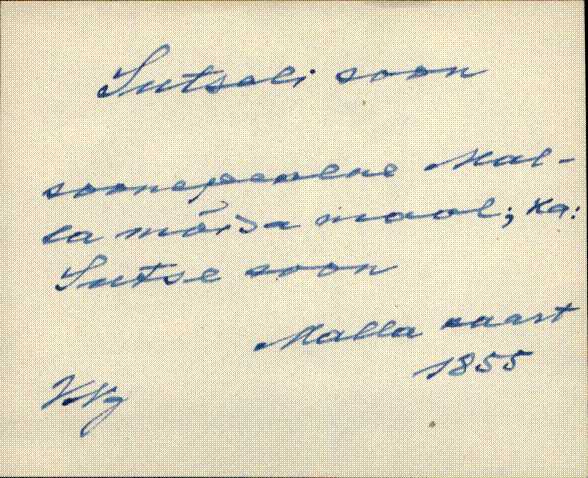 Sutseli soon
soonepealne Mal-
la mõisa maal; ka:
Sutse soon
Malla kaart
1855
VNg